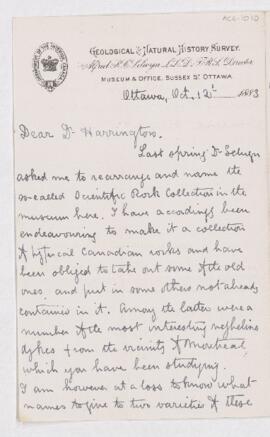 ACC-1010
GEOLOGICAL & NATURAL HISTORY SURVEY.
Alfred R. C. Selwyn, L.L.D., F.R.S., Director
MUSEUM & OFFICE, SUSSEX ST OTTAWA.
Ottawa, Oct. 12th 1883
Dear Dr Harrington.
Last spring Dr Selwyn
asked me to rearrange and name the
so-called Scientific Rock Collection in the
museum here. I have accordingly been
endeavouring to make it a collection
of typical Canadian rocks and have
been obliged to take out some of the old
ones and put in some others not already
contained in it. Among the latter were a
number of the most interesting nepheline
dykes from the vicinity of Montreal
which you have been studying.
I am however at a loss to know what
names to give to two varieties of these